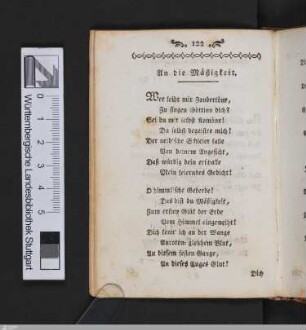 122
An die Mäßigkeit.
Wer leiht mir Zaubertöne,
Zu singen Göttinn dich?
Sei du mir selbst Kamöne!
Du selbst begeistre mich!
Der weiche Schleier falle
Von deinem Angesicht,
Daß würdig dein erschalle
Mein feierndes Gedicht!
O himmlische Geberde!
Das bist du Mäßigkeit,
Zum ersten Glück der Erde
Vom Himmel eingeweiht!
Dich kenn' ich an der Wange
Auroren gleichem Blut,
An diesem festen Gange,
An dieses Auges Glut!
Dich
Württembergische Landesbibliothek Stuttgart